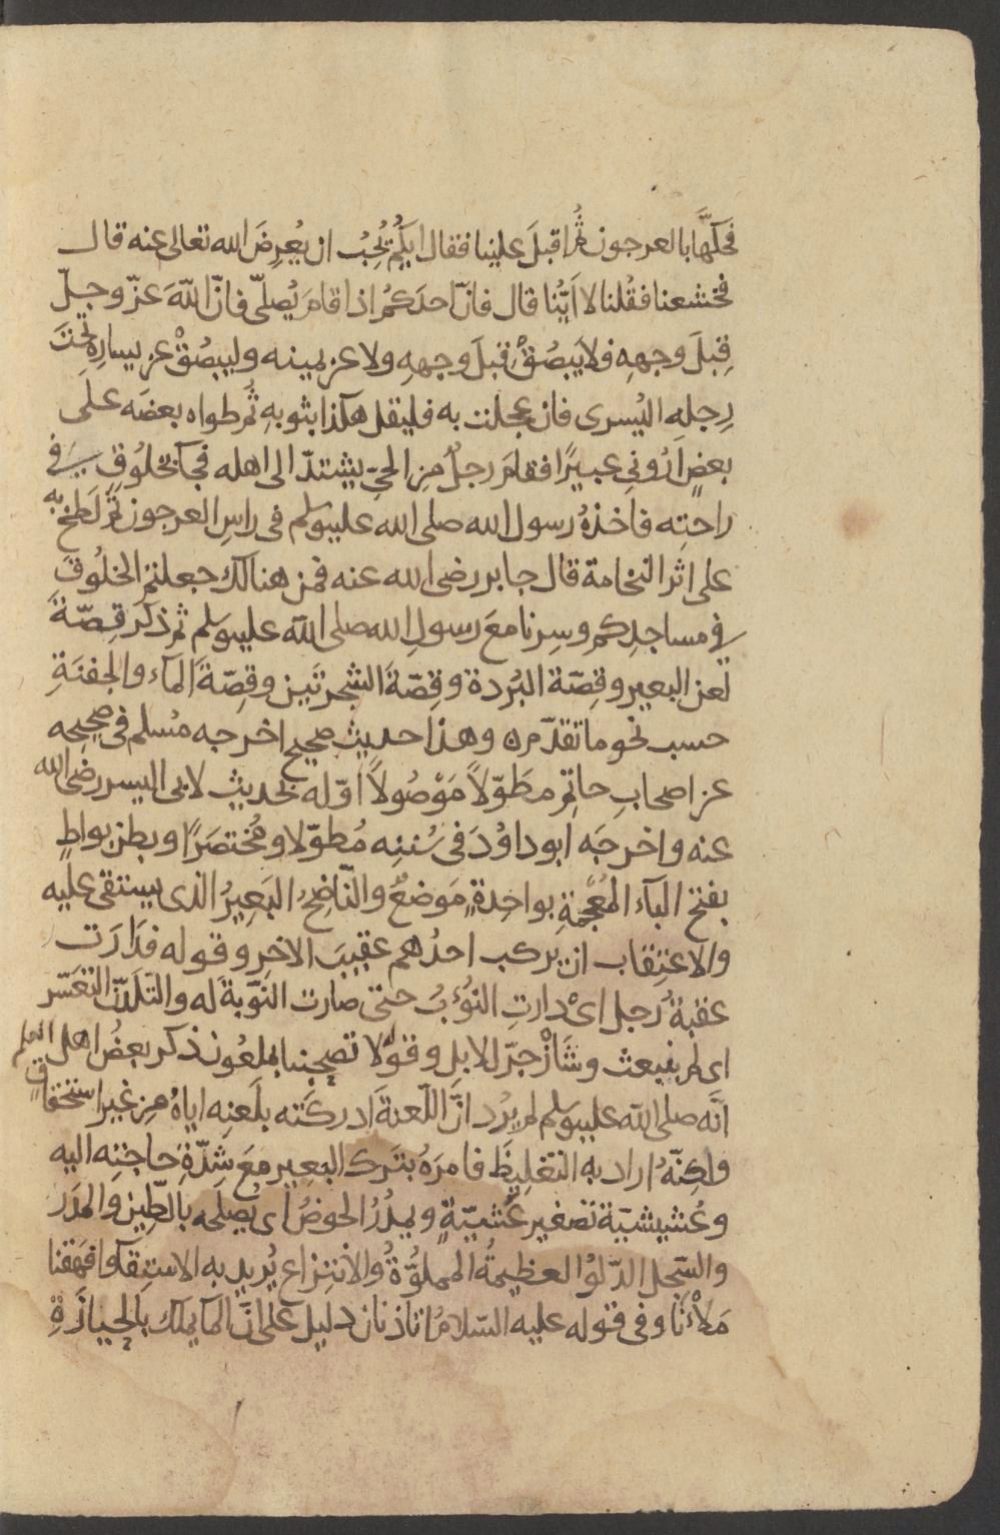 فحكَّها بالعرجون ثُمَّ اقبلَ علينا فقال ايكُم يُحِبُ ان يُعرِضَ الله تعالى عنه قال
فخشعنا فقُلنا لا اَيّنا قال فانّ احدَكُم اذا قامَ يُصلّى فانّ اللّٰهَ عزّ وجلّ
قِبلَ وجهِهِ فلا يَبصُقْ قِبلَ وجههِ ولا عن يمينه وليبصُقْ عن يسارِه تحتَ
رِجلِهِ اليُسرى فان عجلت به فليقل هكذا بثوبهِ ثُم طواه بعضَه على
بعضٍ ارُونِي عبيرًا فقامَ رجلٌ مِن الحيّ يشتدّ الى اهله فجآ بخلُوقٍ في
راحتِه فاخذهُ رسول الله صلى الله عليه وسلم فى راسِ العرجون ثُمّ لَطخ به
على اثر النخامة قال جابر رضى الله عنه فمن هنالك جعلتم الخلُوقَ
في مساجدِكم وسِرنا معَ رسولِ الله صلى اللّٰه عليه وسلم ثم ذكرَ قِصّةَ
لعن البعير وقِصّة البُردة وقِصّةَ الشجرتَين وقِصّةَ المآء والجفنَةِ
حسب نحو ما تقدّم ه وهذا حديث صحيح اخرجه مُسلم فى صحيحه
عن اصحابِ حاتِم مطَوّلاً مَوْصُولاً اوّله بحديث لابى اليسر رضى الله
عنه واخرجَه ابو داوُدَ فى سُننِه مُطوّلا ومُختصَرًا وبطن بواطٍ
بفتح البآء المُعجَمةِ بواحِدةٍ مَوضعٌ والنّاضِحُ البَعِيرُ الذى يستقى عليه
والاعتِقاب ان يركب احدُهم عقيبَ الاخرِ وقوله فدَارَت
عقبةُ رجل اىْ دارتِ النُوَبُ حتى صارت النّوبةَ له والتّلدّن التعَسّر
اى لم ينبعث وشَأْ زجرٌ للابلِ وقولُه لا تصحبنا بملعُون ذكر بعضُ اهل العلم
انّه صلى اللّٰه عليه وسلم لم يُرِد انَّ اللّعنةَ ادركَته بلَعنِه اياهُ مِن غير استحقاقٍ
ولكِنّهُ اراد به التغلِيظَ فامرَهُ بتَرك البعير معَ شِدّةِ حاجتِه اليه
وعُشيشيّة تصغير عُشيّةٍ ويمدُرُ الحوضَ اى يُصلحه بالطّين والمدَر
والسّجل الدّلوُ العظيمةُ المملوُّةُ والانتِزاع يُريد به الاستِقآ وافهَقنا
مَلأنَا وفى قوله عليه السّلام اتاذنان دليل على انّ المآ يملك بالحِيازَةِ